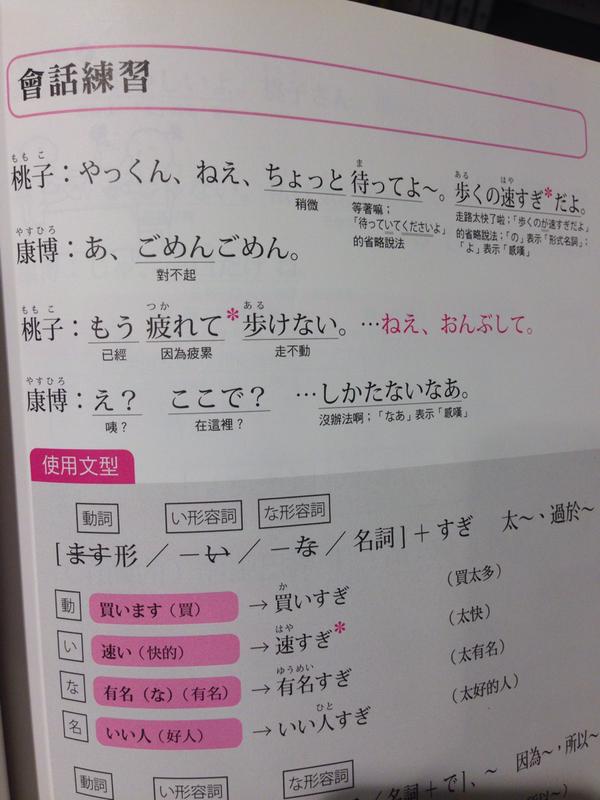 會話練習
ももこ ま ある はや
桃子：やっくん、ねえ、ちょっと 待ってよ～。歩くの速すぎ*だよ。
稍微 等著嘛； 走路太快了啦；「歩くのが速すぎだよ」
「待っていてくださいよ」 的省略說法；「の」表示「形式名詞」；
的省略說法 「よ」表示「感嘆」
やすひろ
康博：あ、ごめんごめん。
對不起
ももこ つか ある
桃子：もう 疲れて*歩けない。…ねえ、おんぶして。
已經 因為疲累 走不動
やすひろ
康博：え？ ここで？ …しかたないなあ。
咦？ 在這裡？ 沒辦法啊；「なあ」表示「感嘆」
使用文型
動詞 い形容詞 な形容詞
[ます形 ／ －い ／ －な ／ 名詞]＋すぎ 太～、過於～
か
動 買います（買） → 買いすぎ （買太多）
はや
い 速い（快的） → 速すぎ* （太快）
ゆうめい
な 有名（な）（有名） → 有名すぎ （太有名）
ひと
名 いい人（好人） → いい人すぎ （太好的人）
動詞 い形容詞 な形容詞
／名詞＋で]、～ 因為～，所以～